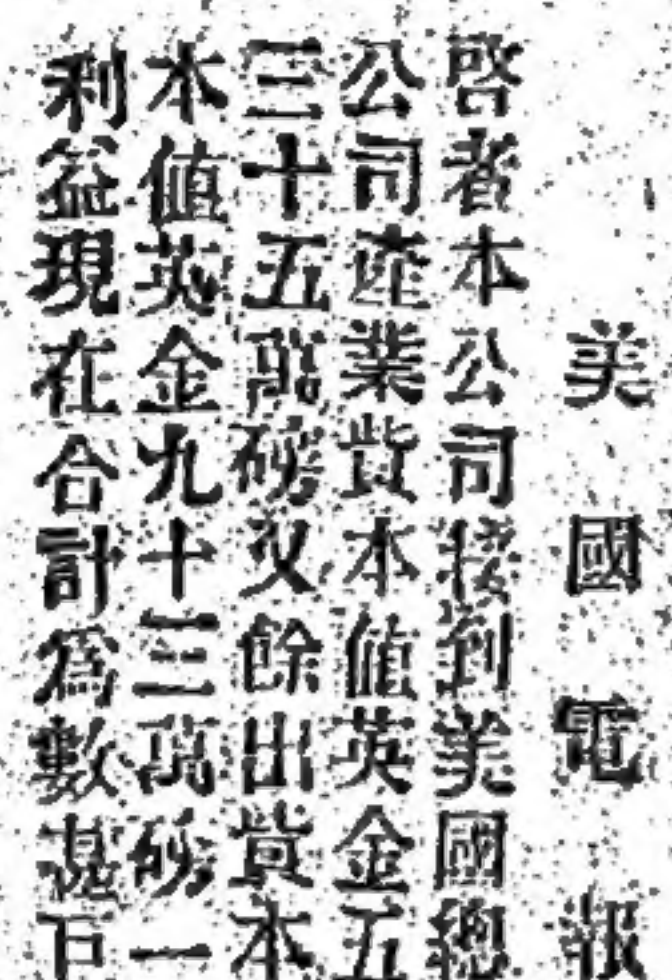 美國電報
啓者本公司接到美國總
公司產業貲本値英金五
三十五萬磅又餘出貲本
本値英金九十三萬磅一
利益現在合計爲數甚巨